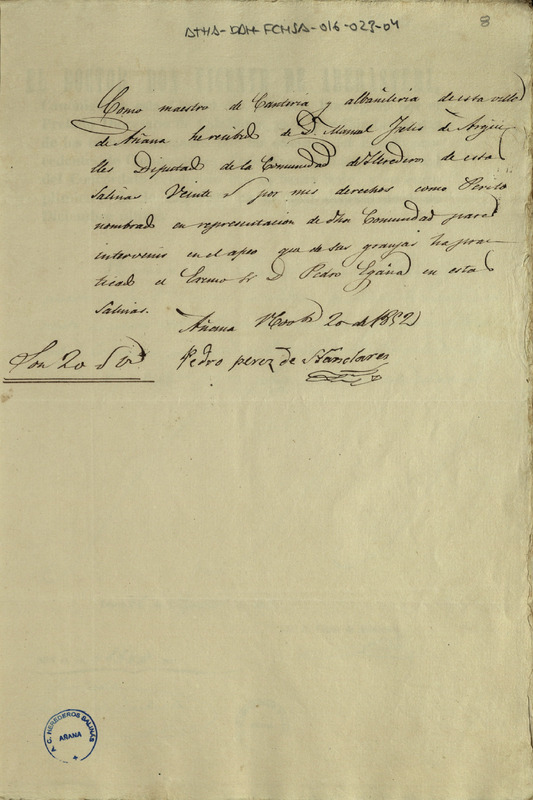 ATHA-DAH-FCHSA-016-023-04
8
Como maestro de Canteria y albañileria de esta villa
de Añana he recibido de D. Manuel Felis de Argüe
lles Diputado de la Comunidad de Herederos de estas
Salinas Veinte por mis derechos como Perito
nombrado en representacion de dha Comunidad para
intervenir en el apeo que de sus granjas ha prac
ticado el Exmo Sr D. Pedro Egaña en estas
Salinas.
Añana 20 de 1852
Son 20
Pedro perez de
A. C. HEREDEROS SALINAS
AÑANA